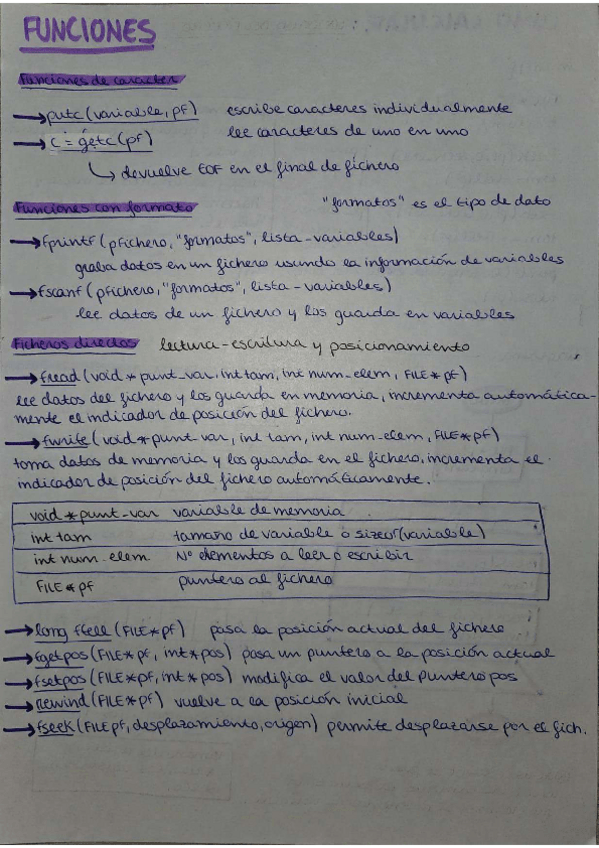 FUNCIONES
Funciones de caracter
→ putc(variable, pf) escribe caracteres individualmente
→ c = getc(pf) lee caracteres de uno en uno
↳ devuelve EOF en el final de fichero
Funciones con formato "formatos" es el tipo de dato
→ fprintf (pfichero, "formatos", lista-variables)
graba datos en un fichero usando la información de variables
→ fscanf (pfichero, "formatos", lista-variables)
lee datos de un fichero y los guarda en variables
Ficheros directos lectura-escritura y posicionamiento
→ fread (void * punt_var, int tam, int num_elem, FILE * pf)
lee datos del fichero y los guarda en memoria, incrementa automática-
mente el indicador de posición del fichero.
→ fwrite (void * punt_var, int tam, int num_elem, FILE * pf)
toma datos de memoria y los guarda en el fichero, incrementa el
indicador de posición del fichero automáticamente.
void * punt_var variable de memoria
int tam tamaño de variable o sizeof(variable)
int num_elem Nº elementos a leer o escribir
FILE * pf puntero al fichero
→ long ftell (FILE * pf) pasa la posición actual del fichero
→ fgetpos (FILE * pf, int * pos) pasa un puntero a la posición actual
→ fsetpos (FILE * pf, int * pos) modifica el valor del puntero pos
→ rewind (FILE * pf) vuelve a la posición inicial
→ fseek (FILE pf, desplazamiento, origen) permite desplazarse por el fich.